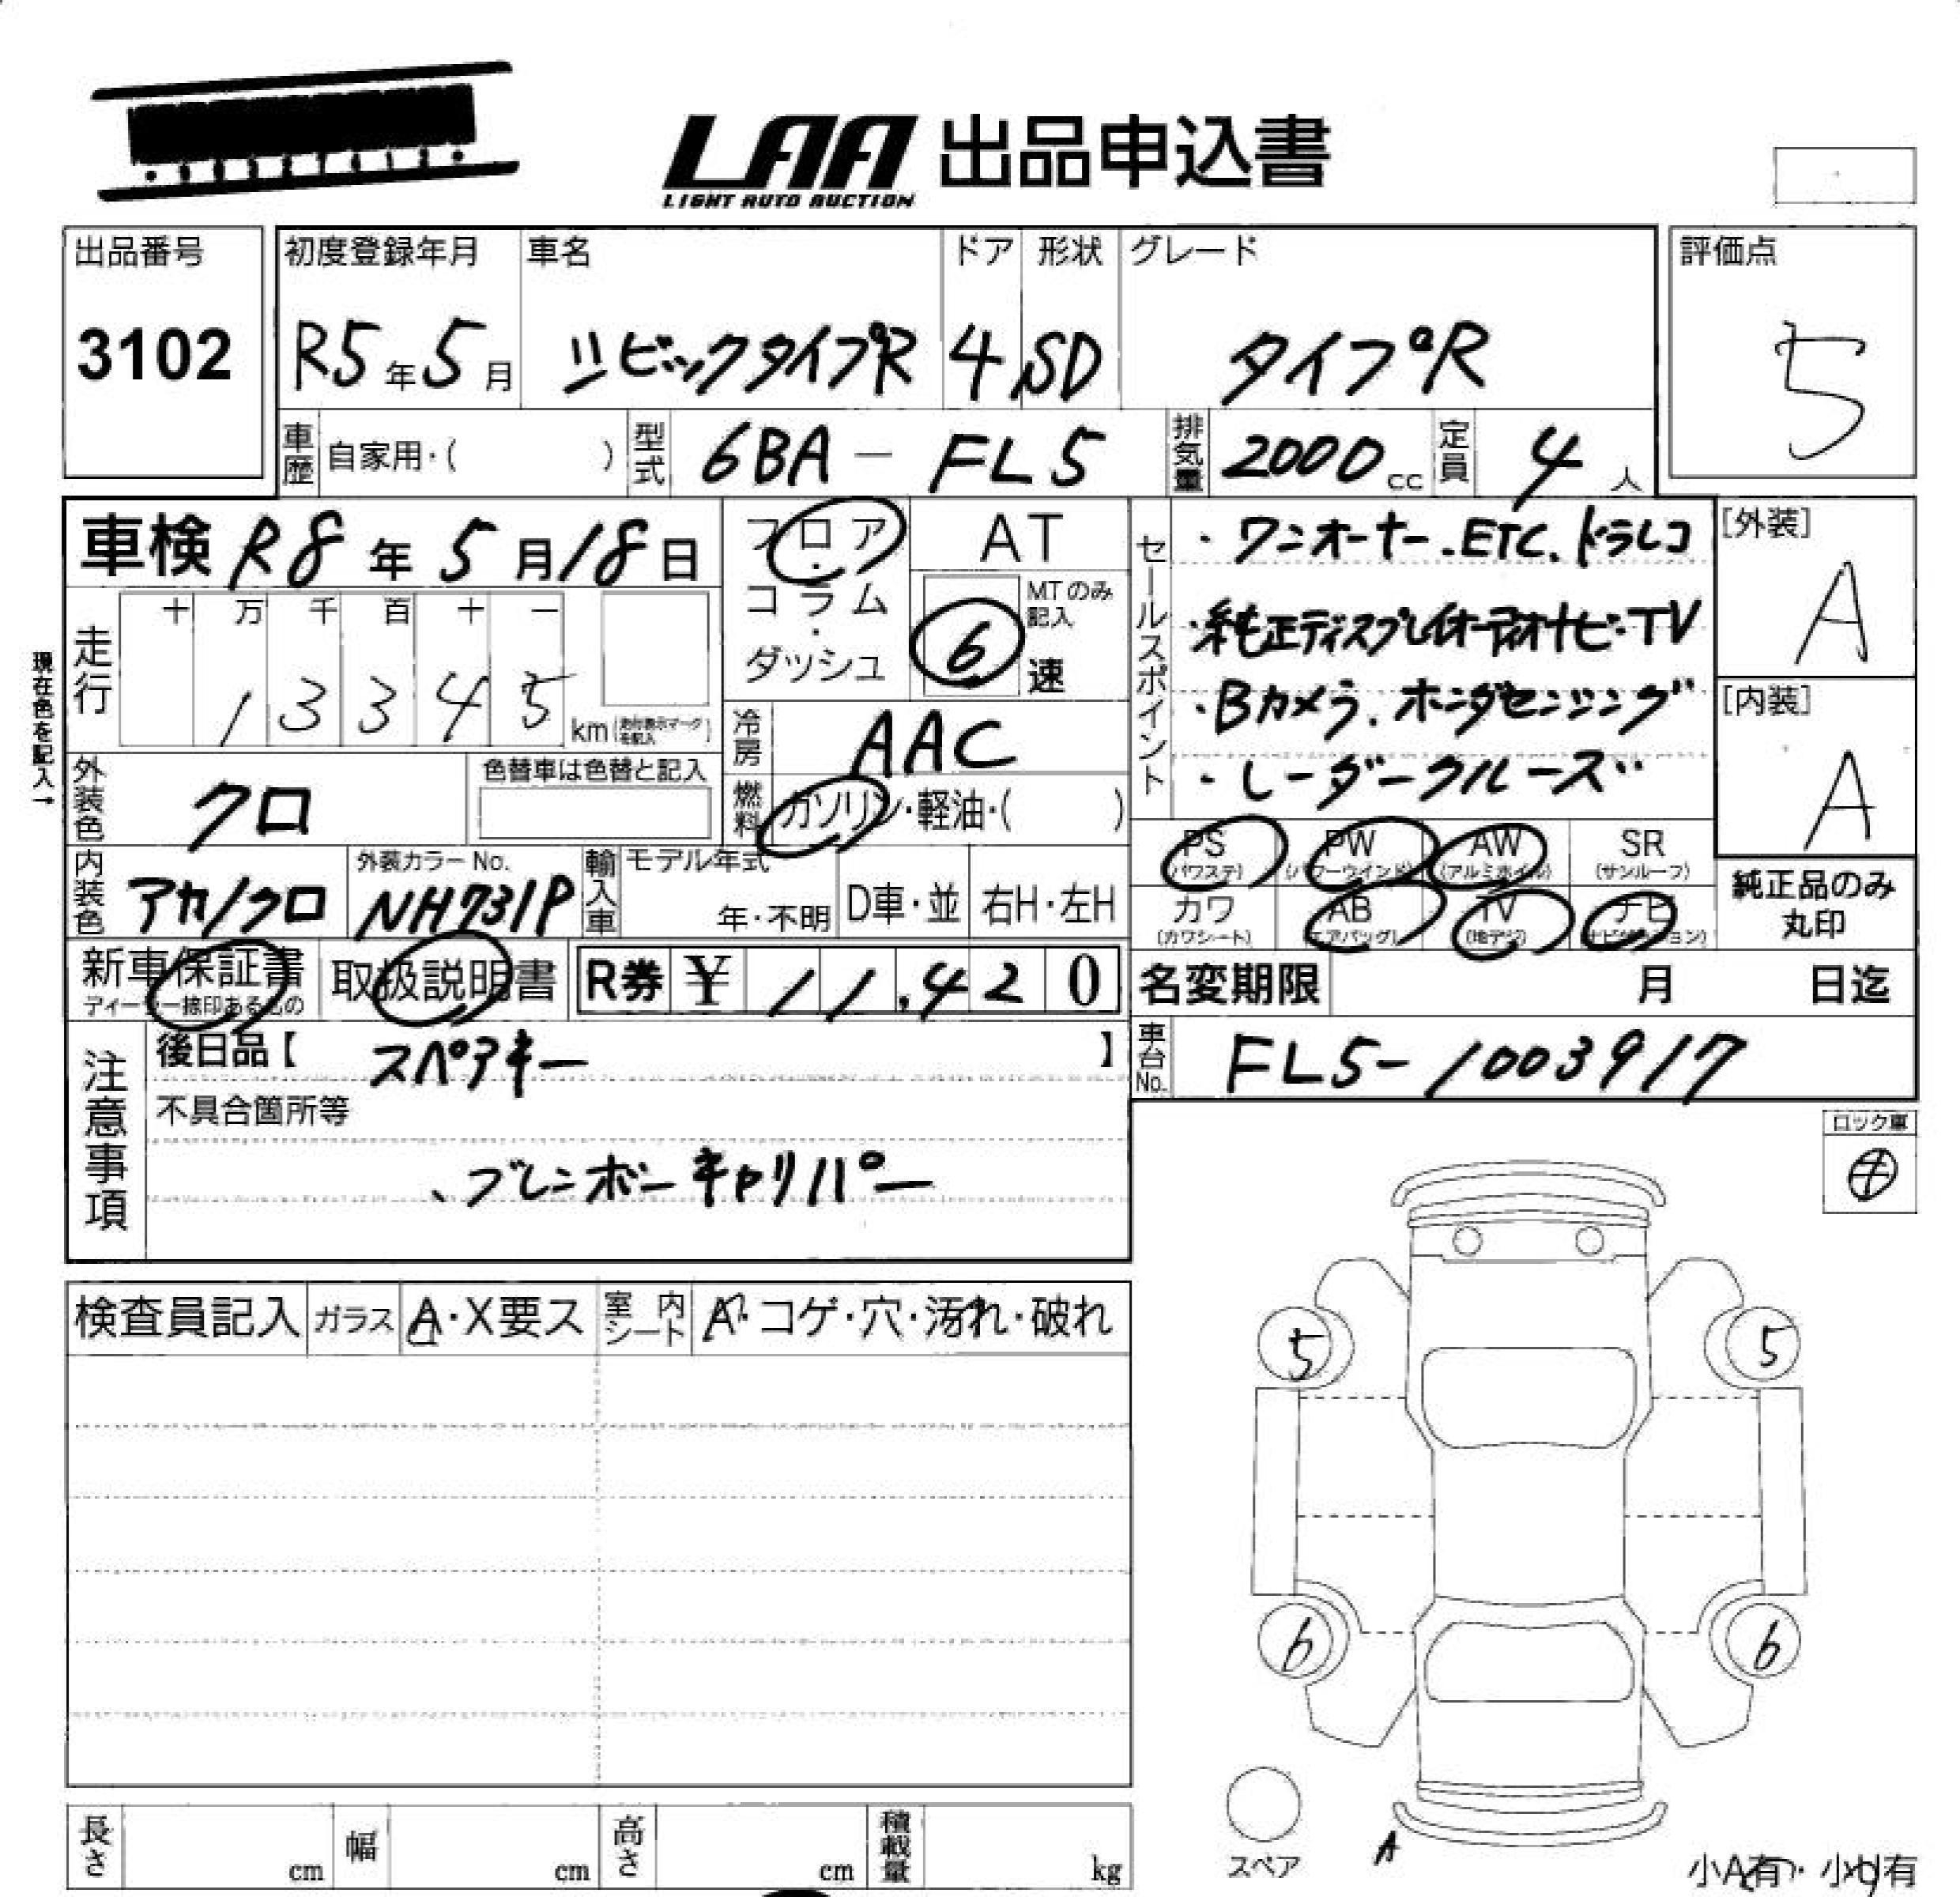 LAA 出品申込書
LIGHT AUTO AUCTION
出品番号 初度登録年月 車名 ドア 形状 グレード 評価点
3102 R5年5月 シビックタイプR 4 SD タイプR 5
車歴 自家用・( ) 型式 6BA - FL5 排気量 2000cc 定員 4人
車検 R8年5月18日 フロア・コラム・ダッシュ AT
MTのみ記入 6速
セールスポイント
・ワンオーナー.ETC.ドラレコ
・純正ディスプレイオーディオナビ・TV
・Bカメラ.ホンダセンシング
・レーダークルーズ
[外装]
A
[内装]
A
現在色を記入→
走行 十 万 千 百 十 一
1 3 3 4 5 km (走行表示マークを記入)
冷房 AAC
外装色 クロ 色替車は色替と記入
燃料 ガソリン・軽油・( )
PS (パワステ) PW (パワーウインド) AW (アルミホイル) SR (サンルーフ)
カワ (カワシート) AB (エアバッグ) TV (地デジ) ナビ (ナビゲーション)
純正品のみ丸印
内装色 アカ/クロ 外装カラーNo. NH731P 輸入車 モデル年式 年・不明 D車・並 右H・左H
新車保証書 ディーラー捺印あるもの 取扱説明書 R券 ¥ 11,420
名変期限 月 日迄
車台No. FL5-1003917
注意事項
後日品【 スペアキー 】
不具合箇所等
、ブレンボーキャリパー
ロック車
検査員記入 ガラス A・X要ス 室内シート A・コゲ・穴・汚れ・破れ
5 5
6 6
スペア
A
小A有・小U有
長さ cm 幅 cm 高さ cm 積載量 kg